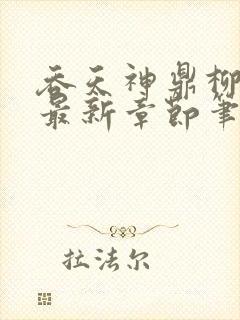 吞天神鼎柳
最新章节笔
拉法尔